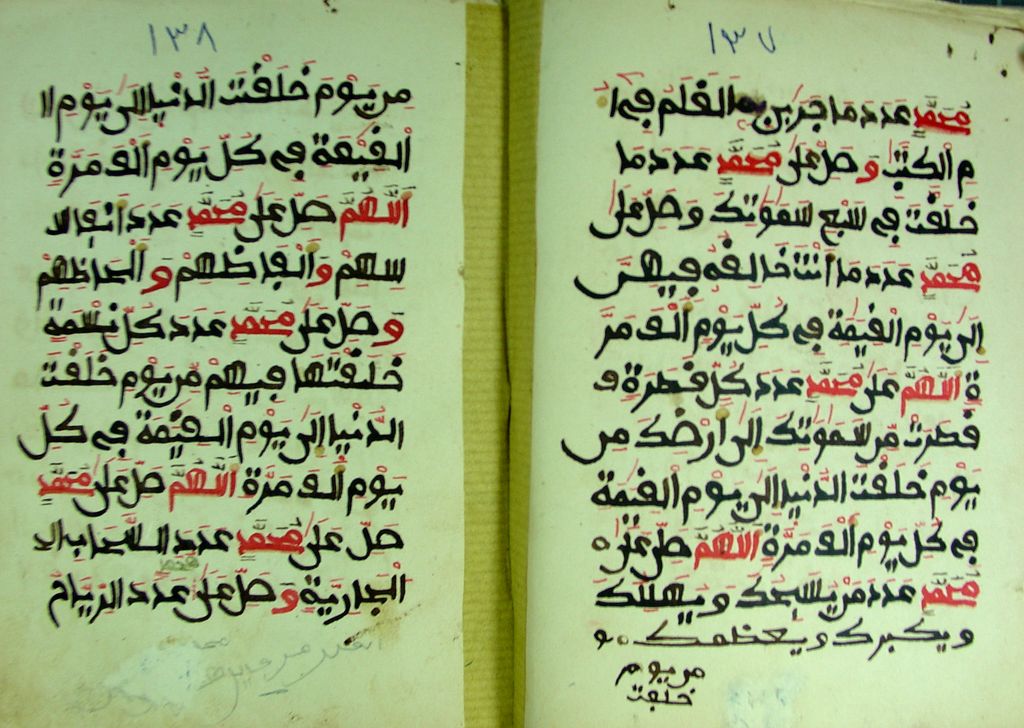 ١٣٧
محمد عدد ما جرى به القلم في ا
م الكتب وصل على محمد عدد ما
خلقت في سبع سموتك وصل على
محمد عدد ما أنت خالقه فيهن
إلى يوم القيمة في كل يوم ألف مر
ة اللهم على محمد عدد كل قطرة
قطرت من سموتك إلى أرضك من
يوم خلقت الدنيا إلى يوم القيمة
في كل يوم ألف مرة اللهم صل على
محمد عدد من يسبحك ويهللك
ويكبرك ويعظمك
من يوم
خلقت
١٣٨
من يوم خلقت الدنيا إلى يوم ا
القيمة في كل يوم ألف مرة
اللهم صل على محمد عدد أنفا
سهم وألفاظهم وألحاظهم
وصل على محمد عدد كل نسمة
خلقتها فيهم من يوم خلقت
الدنيا إلى يوم القيمة في كل
يوم ألف مرة اللهم صل على محمد
صل على محمد عدد السحاب
الجارية وصل على عدد الرياح